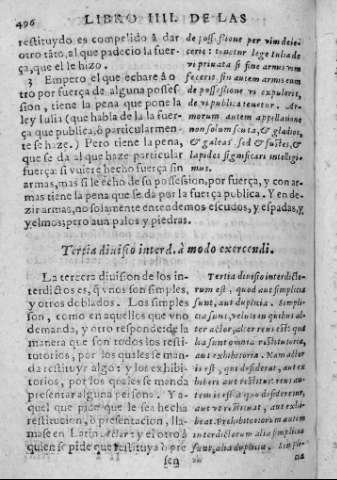 496
LIBRO IIII. DE LAS
restituydo es compelido à dar
otro tãto, al que padeciò la fuer-
ça, que el le hizo.
3 Empero el que echare à o
tro por fuerça de alguna posses-
sion, tiene la pena que pone la
ley Iulia (que habla de la fuer-
ça que publica, ò particularmen-
te se haze.) Pero tiene la pena,
que se dà al que haze particular
fuerça: si vuiere hecho fuerça sin
armas, mas si le echò de su possession, por fuerça, y con ar-
mas tiene la pena que se dà por la fuerça publica. Y en de-
zir armas, no solamente entendemos escudos, y espadas, y
yelmos; pero aun palos y piedras.
de possessione per vim deie-
cerit: tenetur lege Iulia de
vi priuata si sine armis vim
fecerit. sin autem armis eum
de possessione vi expulerit,
de vi publica tenetur. Ar-
morum autem appellatione
non solum scuta, & gladios,
& galeas: sed & fustes, &
lapides significari intelligi-
mus.
Tertia diuisio interd. à modo exercendi.
La tercera diuision de los in-
terdictos es, q̃ vnos son simples,
y otros doblados. Los simples
son, como en aquellos que vno
demanda, y otro responde: de la
manera que son todos los resti-
tutorios, por los quales se man-
da restituyr algo: y los exhibi-
torios, por los quales se manda
presentar alguna persona. Ya-
quel que pide que le sea hecha
restitucion, ò presentacion, lla-
mase en Latin. Actor: y el otro à
quien se pide que restituya ò pre
Tertia diuisio interdicto-
rum est, quod aut simplicia
sunt, aut duplicia. Simpli-
cia sunt, velut in quibus al-
ter actor, alter reus est: qua
lia sunt omnia restitutoria,
aut exhibitoria. Nam actor
is est, qui desiderat, aut ex
hiberi aut restitui: reus au-
tem is est à quo desideretur,
aut vt restituat, aut exhi-
beat. Prohibitorium autem
interdictorum alia simplicia
sunt, alia duplicia. Simpli-
sen